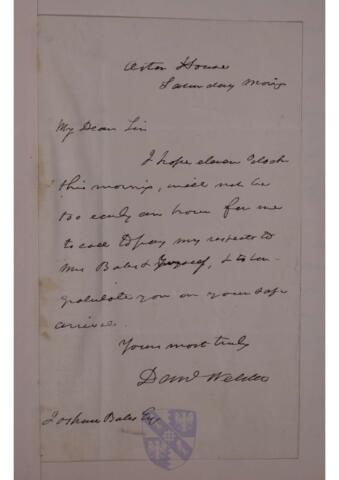 Astor House
Saturday Morng
My Dear Sir
I hope eleven O'clock
this morning, will not be
too early an hour for me
to call to pay my respects to
Mrs Bates & yourself, & to con-
gratulate you on your safe
arrival.
Yours most truly
Danl Webster
Joshua Bates Esq